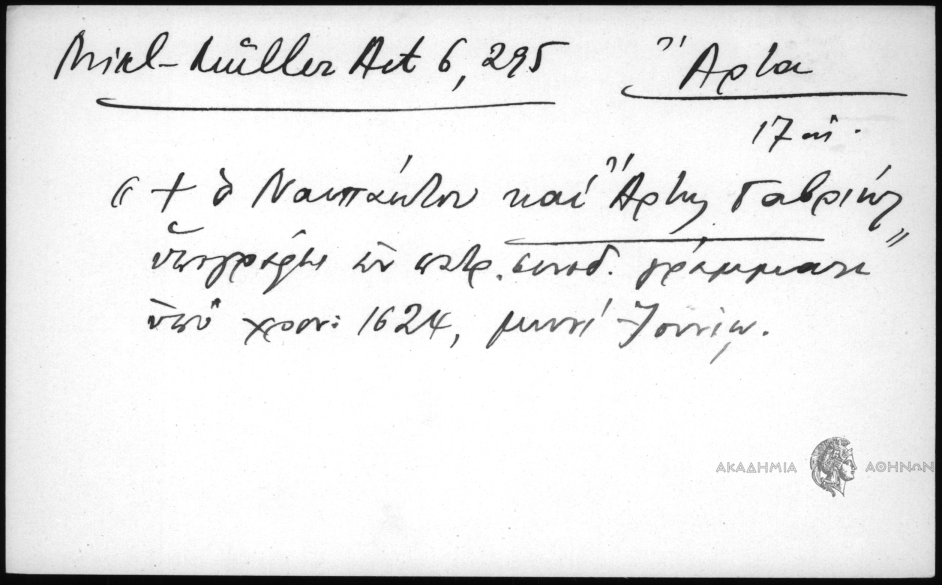 Mikl-Müller Act 6, 295
Ἄρτα
17 αἰ.
« + ὁ Ναυπάκτου καὶ Ἄρτης Γαβριὴλ »
ὑπογράφει ἐν πατρ. συνοδ. γράμματι
ὑπὸ χρον: 1624, μηνὶ Ἰουνίῳ.
ΑΚΑΔΗΜΙΑ ΑΘΗΝΩΝ